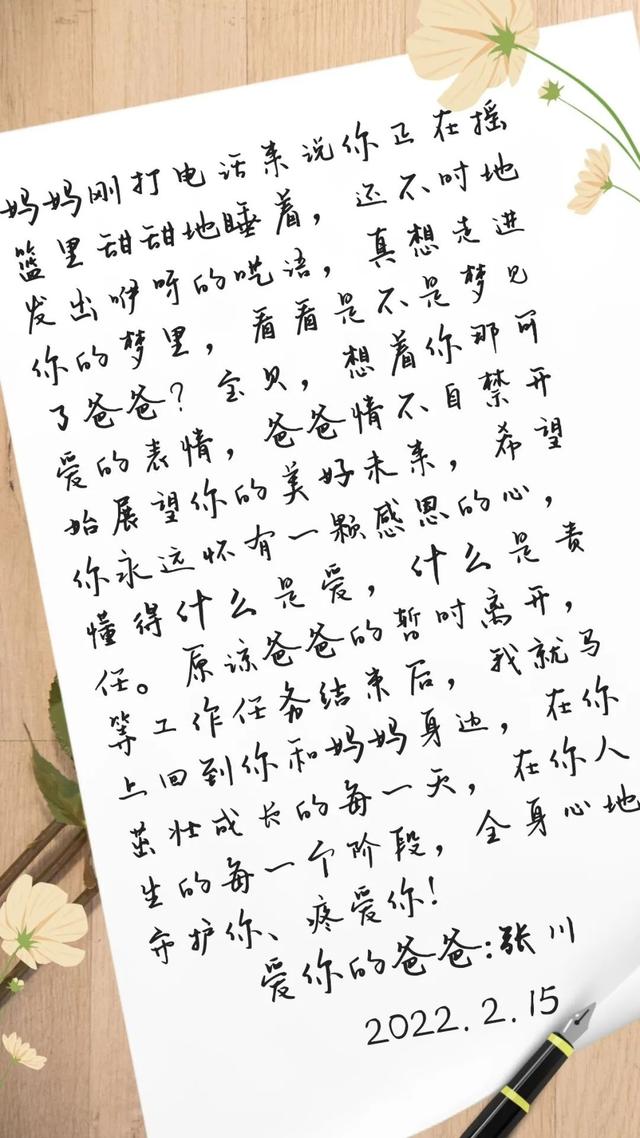 妈妈刚打电话来说你正在摇
篮里甜甜地睡着，还不时地
发出咿呀的呓语，真想走进
你的梦里，看看是不是梦见
了爸爸？宝贝，想着你那可
爱的表情，爸爸情不自禁开
始展望你的美好未来，希望
你永远怀有一颗感恩的心，
懂得什么是爱，什么是责
任。原谅爸爸的暂时离开，
等工作任务结束后，我就马
上回到你和妈妈身边，在你
茁壮成长的每一天，在你人
生的每一个阶段，全身心地
守护你、疼爱你！
爱你的爸爸：张川
2022.2.15